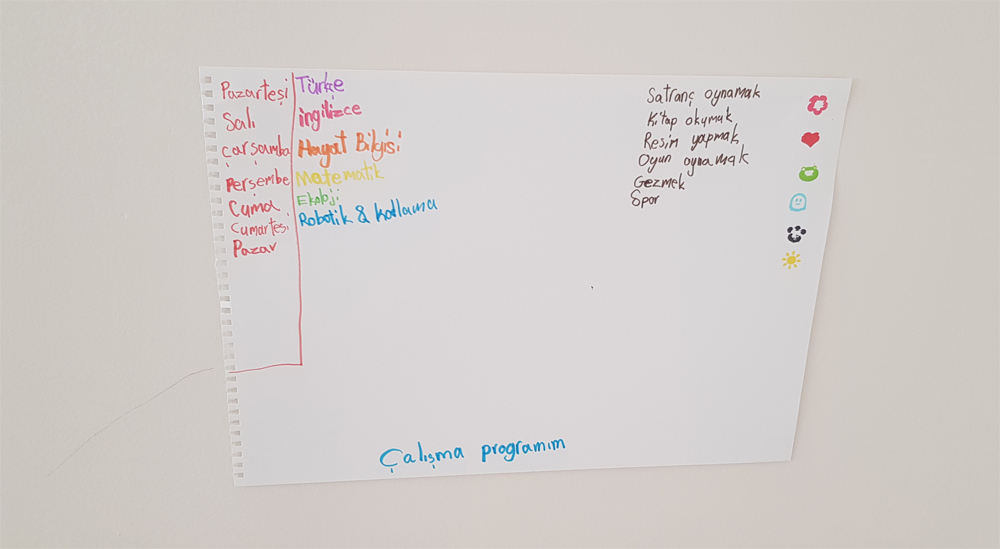 Pazartesi
Salı
Çarşamba
Perşembe
Cuma
Cumartesi
Pazar
Türkçe
ingilizce
Hayat Bilgisi
Matematik
Ekoloji
Robotik & kodlama
Satranç oynamak
Kitap okumak
Resim yapmak
Oyun oynamak
Gezmek
Spor
Çalışma programım